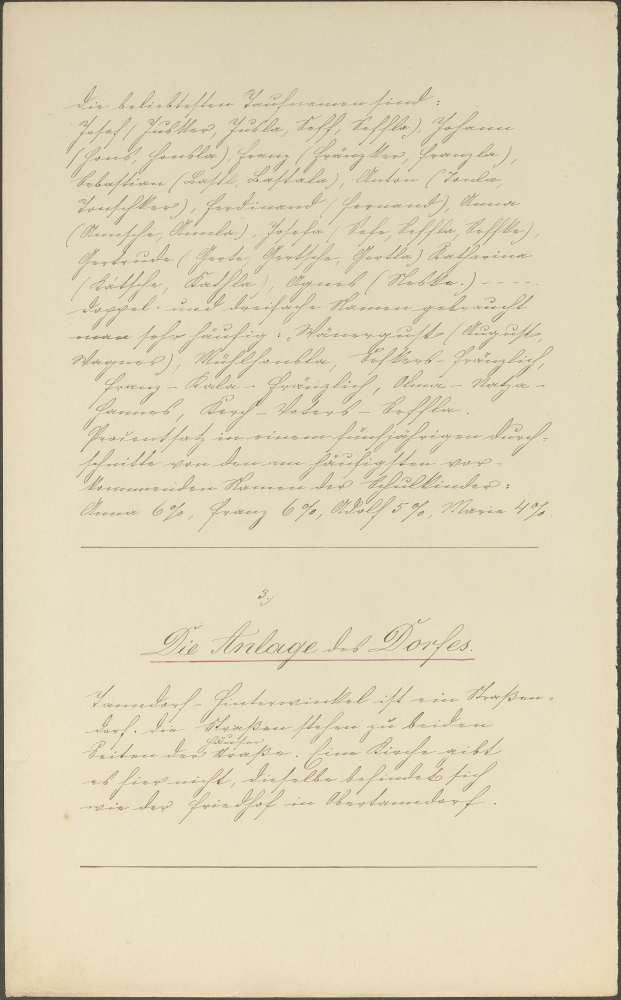 Die beliebtesten Taufnamen sind:
Josef (Jusker, Jusla, Seff, Seffla), Johann
(Hons, Honsla), Franz (Fränzker, Franzla),
Sebastian (Bastl, Bastala), Anton (Tonla,
Tonschker), Ferdinand (Fernand), Anna
(Annsche, Annla), Josefa (Sefe, Seffla, Seffke),
Gertrude (Gerte, Gertsche, Gertla) Katharina
(Katsche, Kathla), Agnes (Neske.) - - - -
Doppel- und dreifache Namen gebraucht
man sehr häufig: Wänergust (August
Wagner), Mühlhonsla, Fränzlich,
Franz - Kala - Fränzlich, Olma - Natza -
Hannes, Kerch - Voters - Seffla.
Prozentsatz in einem fünfjährigen Durch-
schnitte von den am häufigsten vor-
kommenden Namen der Schulkinder:
Anna 6%, Franz 6%, Adolf 5%, Marie 4%.
3.)
Die Anlage des Dorfes.
Tanndorf - Hinterwinkel ist ein Straßen-
dorf. Die Straßen stehen zu beiden
Häuser
Seiten der Straße. Eine Kirche gibt
es hier nicht, dieselbe befindet sich
wie der Friedhof in Obertanndorf.